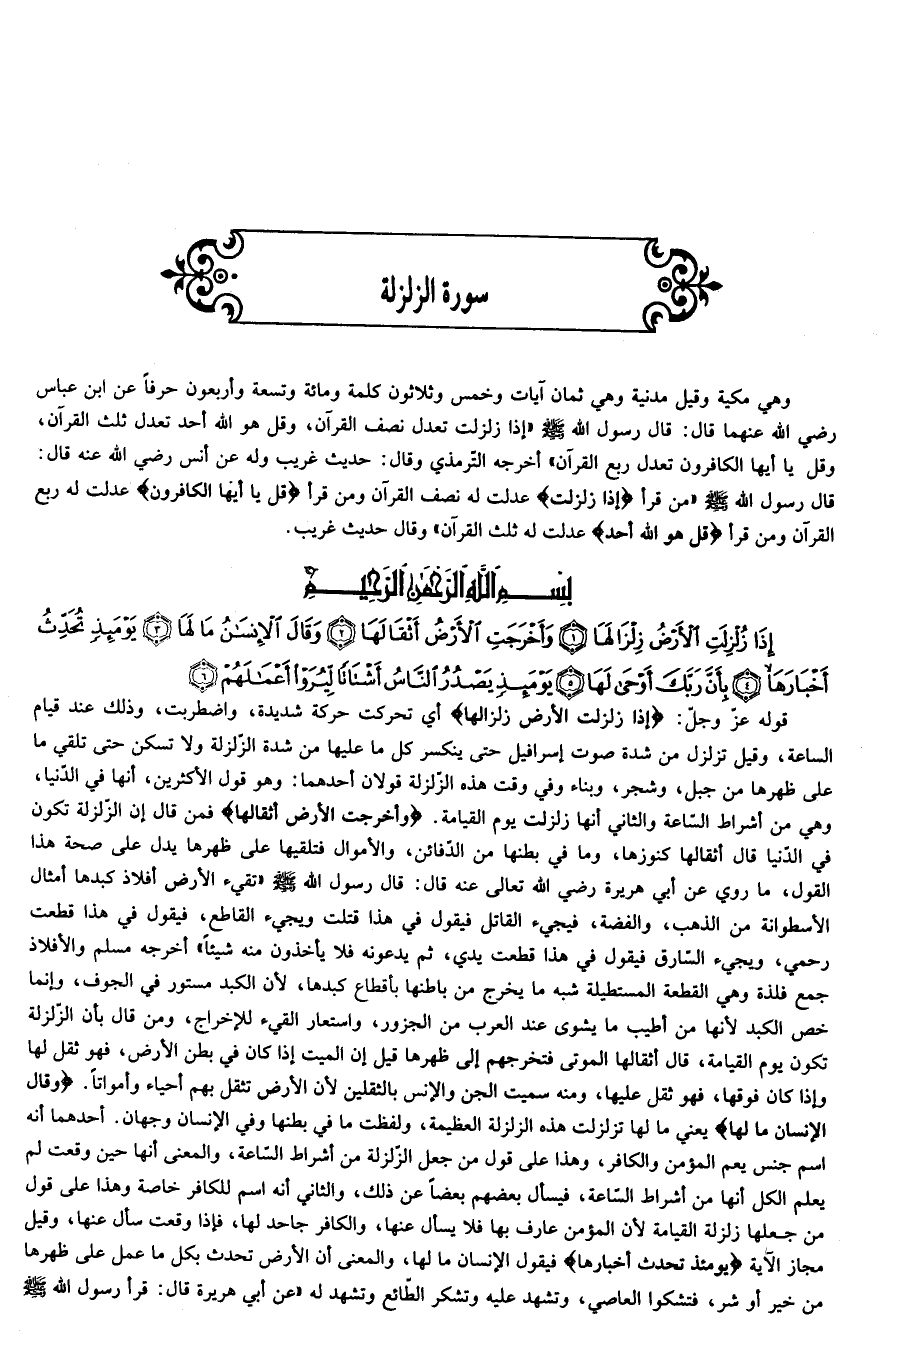 سورة الزلزلة
وهي مكية وقيل مدنية وهي ثمان آيات وخمس وثلاثون كلمة ومائة وتسعة وأربعون حرفاً عن ابن عباس
رضي الله عنهما قال: قال رسول الله ﷺ «إذا زلزلت تعدل نصف القرآن، وقل هو الله أحد تعدل ثلث القرآن،
وقل يا أيها الكافرون تعدل ربع القرآن» أخرجه الترمذي وقال: حديث غريب وله عن أنس رضي الله عنه قال:
قال رسول الله ﷺ «من قرأ ﴿إذا زلزلت﴾ عدلت له نصف القرآن ومن قرأ ﴿قل يا أيها الكافرون﴾ عدلت له ربع
القرآن ومن قرأ ﴿قل هو الله أحد﴾ عدلت له ثلث القرآن» وقال حديث غريب.
بِسْمِ اللَّهِ الرَّحْمَٰنِ الرَّحِيمِ
إِذَا زُلْزِلَتِ ٱلْأَرْضُ زِلْزَالَهَا ﴿١﴾ وَأَخْرَجَتِ ٱلْأَرْضُ أَثْقَالَهَا ﴿٢﴾ وَقَالَ ٱلْإِنسَٰنُ مَا لَهَا ﴿٣﴾ يَوْمَئِذٍ تُحَدِّثُ
أَخْبَارَهَا ﴿٤﴾ بِأَنَّ رَبَّكَ أَوْحَىٰ لَهَا ﴿٥﴾ يَوْمَئِذٍ يَصْدُرُ ٱلنَّاسُ أَشْتَاتًا لِّيُرَوْا۟ أَعْمَٰلَهُمْ ﴿٦﴾
قوله عزّ وجلّ: ﴿إذا زلزلت الأرض زلزالها﴾ أي تحركت حركة شديدة، واضطربت، وذلك عند قيام
الساعة، وقيل تزلزل من شدة صوت إسرافيل حتى ينكسر كل ما عليها من شدة الزّلزلة ولا تسكن حتى تلقي ما
على ظهرها من جبل، وشجر، وبناء وفي وقت هذه الزّلزلة قولان أحدهما: وهو قول الأكثرين، أنها في الدّنيا،
وهي من أشراط السّاعة والثاني أنها زلزلت يوم القيامة. ﴿وأخرجت الأرض أثقالها﴾ فمن قال إن الزّلزلة تكون
في الدّنيا قال أثقالها كنوزها، وما في بطنها من الدّفائن، والأموال فتلقيها على ظهرها يدل على صحة هذا
القول، ما روي عن أبي هريرة رضي الله تعالى عنه قال: قال رسول الله ﷺ «تقيء الأرض أفلاذ كبدها أمثال
الأسطوانة من الذهب، والفضة، فيجيء القاتل فيقول في هذا قتلت ويجيء القاطع، فيقول في هذا قطعت
رحمي، ويجيء السّارق فيقول في هذا قطعت يدي، ثم يدعونه فلا يأخذون منه شيئاً» أخرجه مسلم والأفلاذ
جمع فلذة وهي القطعة المستطيلة شبه ما يخرج من باطنها بأقطاع كبدها، لأن الكبد مستور في الجوف، وإنما
خص الكبد لأنها من أطيب ما يشوى عند العرب من الجزور، واستعار القيء للإخراج، ومن قال بأن الزّلزلة
تكون يوم القيامة، قال أثقالها الموتى فتخرجهم إلى ظهرها قيل إن الميت إذا كان في بطن الأرض، فهو ثقل لها
وإذا كان فوقها، فهو ثقل عليها، ومنه سميت الجن والإنس بالثقلين لأن الأرض تثقل بهم أحياء وأمواتاً. ﴿وقال
الإنسان ما لها﴾ يعني ما لها تزلزلت هذه الزلزلة العظيمة، ولفظت ما في بطنها وفي الإنسان وجهان. أحدهما أنه
اسم جنس يعم المؤمن والكافر، وهذا على قول من جعل الزّلزلة من أشراط السّاعة، والمعنى أنها حين وقعت لم
يعلم الكل أنها من أشراط السّاعة، فيسأل بعضهم بعضاً عن ذلك، والثاني أنه اسم للكافر خاصة وهذا على قول
من جعلها زلزلة القيامة لأن المؤمن عارف بها فلا يسأل عنها، والكافر جاحد لها، فإذا وقعت سأل عنها، وقيل
مجاز الآية ﴿يومئذ تحدث أخبارها﴾ فيقول الإنسان ما لها، والمعنى أن الأرض تحدث بكل ما عمل على ظهرها
من خير أو شر، فتشكوا العاصي، وتشهد عليه وتشكر الطّائع وتشهد له «عن أبي هريرة قال: قرأ رسول الله ﷺ